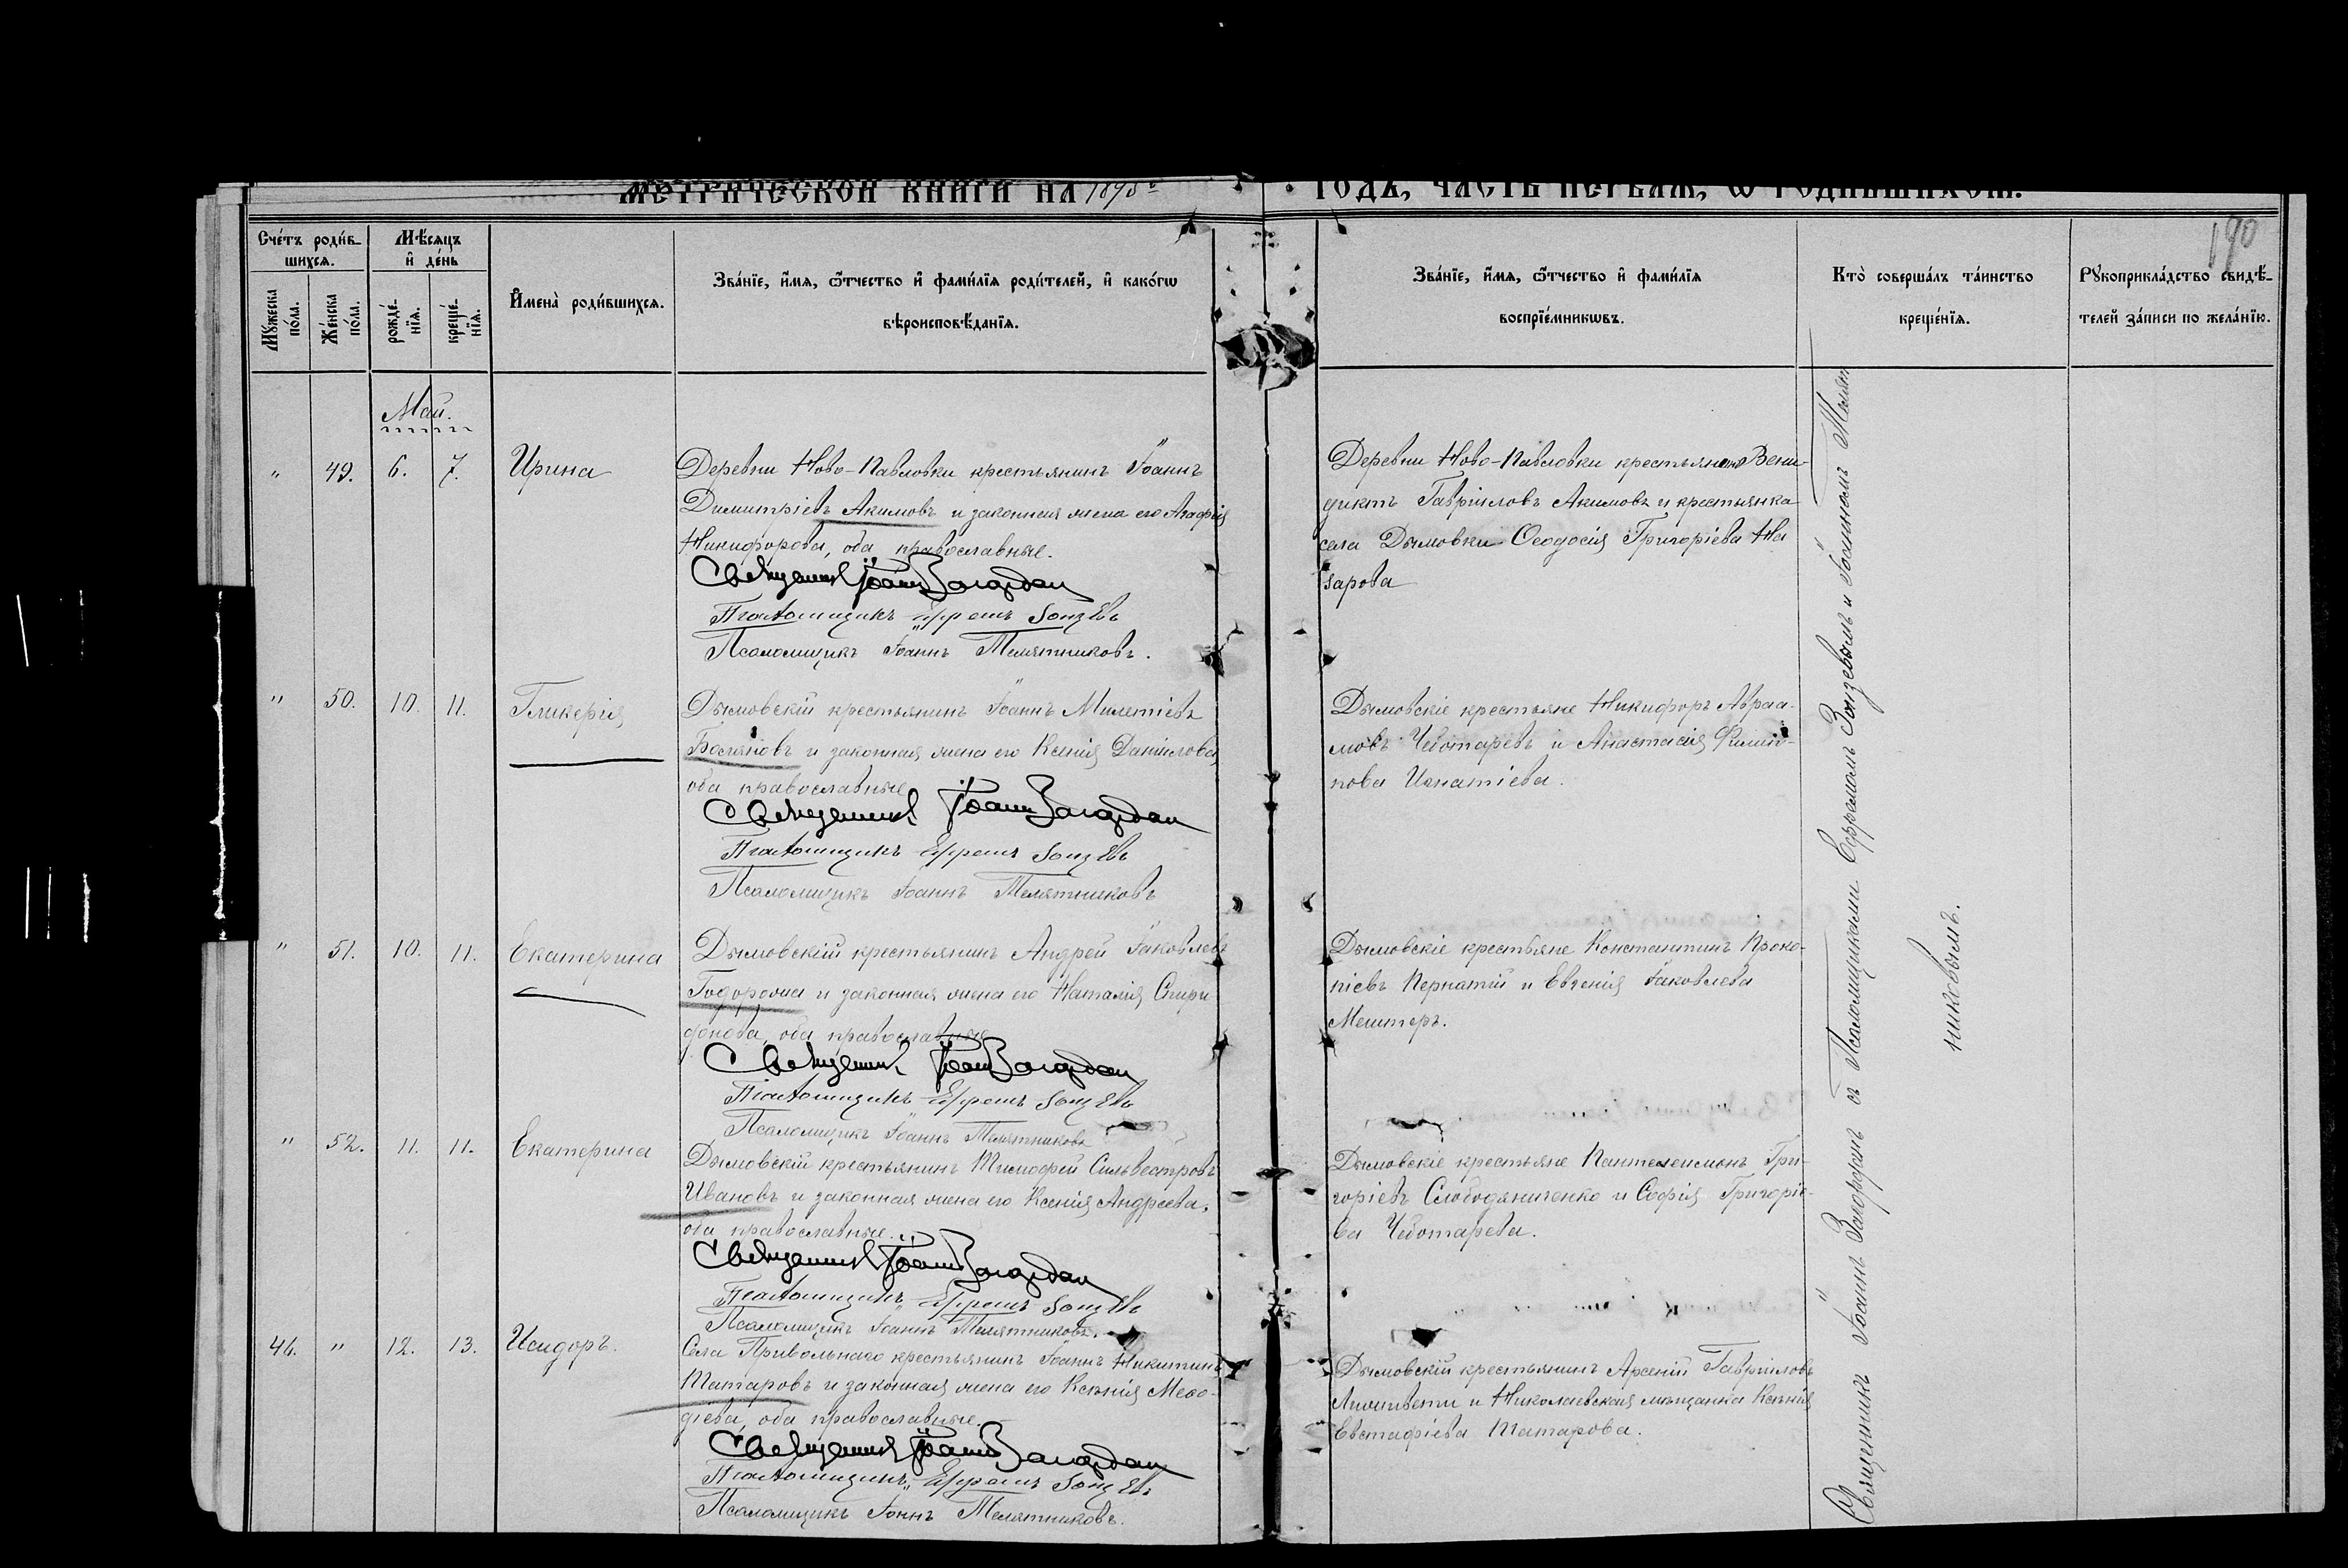 МЕТРИЧЕСКОЙ КНИГИ НА 1895 г
ГОДЪ, ЧАСТЬ ПЕРВАѦ, Ѡ РОДИВШИХСѦ.
190
Сче́тъ роди́в-
шихсѧ.
Мѣ́сѧцъ
и҆ де́нь
Мꙋ́жеска
по́ла.
Же́нска
по́ла.
рожде́-
нїѧ.
креще́-
нїѧ.
И҆мена̀ роди́вшихсѧ.
Зва́нїе, и҆́мѧ, ѻ҆́тчество и҆ фами́лїѧ роди́телей, и҆ како́гѡ
вѣроисповѣ́данїѧ.
Зва́нїе, и҆́мѧ, ѻ҆́тчество и҆ фами́лїѧ
воспрїе́мникѡвъ.
Кто̀ соверша́лъ та́инство
креще́нїѧ.
Рꙋкоприкла́дство свидѣ́-
телей за́писи по жела́нїю.
Май.
" 49. 6. 7. Ирина
Деревни Ново-Павловки крестьянинъ Іоаннъ
Димитріевъ Акимовъ и законная жена его Агафія
Никифорова, оба православные.
Священникъ Іоаннъ Загордан
Псаломщикъ Ефремъ Зонзевъ
Псаломщикъ Іоаннъ Телятниковъ.
Деревни Ново-Павловки крестьянинъ Вени-
диктъ Гавріиловъ Акимовъ и крестьянка
села Дымовки Ѳеодосія Григоріева На
зарова
" 50. 10. 11. Гликерія
Дымовскій крестьянинъ Іоаннъ Милетіевъ
Босняновъ и законная жена его Ксенія Даніилова,
оба православные
Священникъ Іоаннъ Загордан
Псаломщикъ Ефремъ Зонзевъ
Псаломщикъ Іоаннъ Телятниковъ
Дымовскіе крестьяне Никифоръ Авраа-
мовъ Чеботаревъ и Анастасія Филип-
пова Игнатіева.
" 51. 10. 11. Екатерина
Дымовскій крестьянинъ Андрей Іаковлевъ
Тодорогла и законная жена его Наталія Спири
донова, оба православные
Священникъ Іоаннъ Загордан
Псаломщикъ Ефремъ Зонзевъ
Псаломщикъ Іоаннъ Телятниковъ
Дымовскіе крестьяне Константинъ Проко-
піевъ Пернатій и Евгенія Іаковлева
Мештеръ.
" 52. 11. 11. Екатерина
Дымовскій крестьянинъ Тимофей Сильвестровъ
Ивановъ и законная жена его Ксенія Андреева,
оба православные.
Священникъ Іоаннъ Загордан
Псаломщикъ Ефремъ Зонзевъ
Псаломщикъ Іоаннъ Телятниковъ.
Дымовскіе крестьяне Пантелеимонъ Гри-
горіевъ Слободяниченко и Софія Григоріе-
ва Чеботарева.
46. " 12. 13. Исидоръ.
Села Привольнаго крестьянинъ Іоаннъ Никитинъ
Татаровъ и законная жена его Ксенія Меѳо-
діева, оба православные.
Священникъ Іоаннъ Загордан
Псаломщикъ Ефремъ Зонзевъ
Псаломщикъ Іоннъ Телятниковъ.
Дымовскій крестьянинъ Арсеній Гавріиловъ
и Николаевская мѣщанка Ксенія
Евстафіева Татарова.
Священникъ Іоаннъ Загорданъ съ Псаломщиками Ефремомъ Зонзевымъ и Іоанномъ Телят
никовымъ.